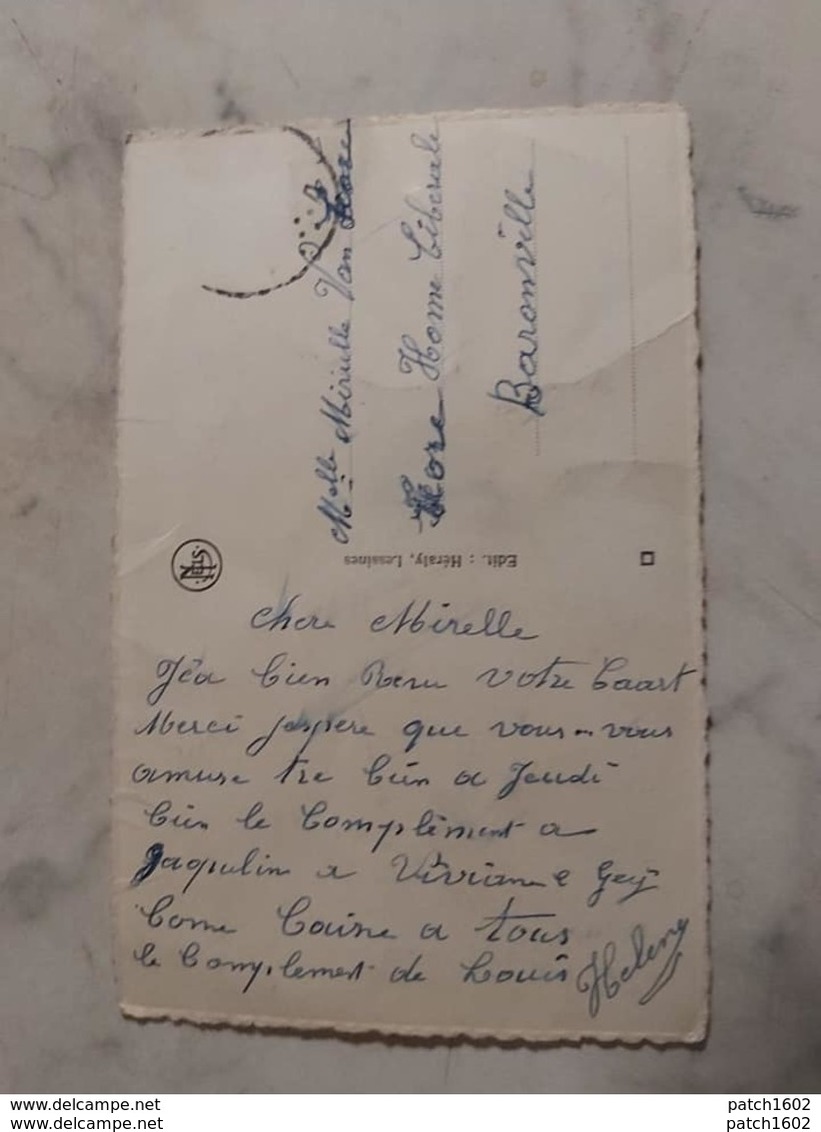 Melle Mirielle Van
Home Liberale
Baronville
NELS
Edit. : Héraly, Lessines
Chere Mirelle
Jéa bien Recu votre Caart
Merci jespere que vous vous
amuse tre bien a Jeudi
bien le Complément a
Jaqulin a Vivriane Guÿ
bone baise a tous
le Complement de Louis
Helene
www.delcampe.net
www.delcampe.net
patch1602
patch1602